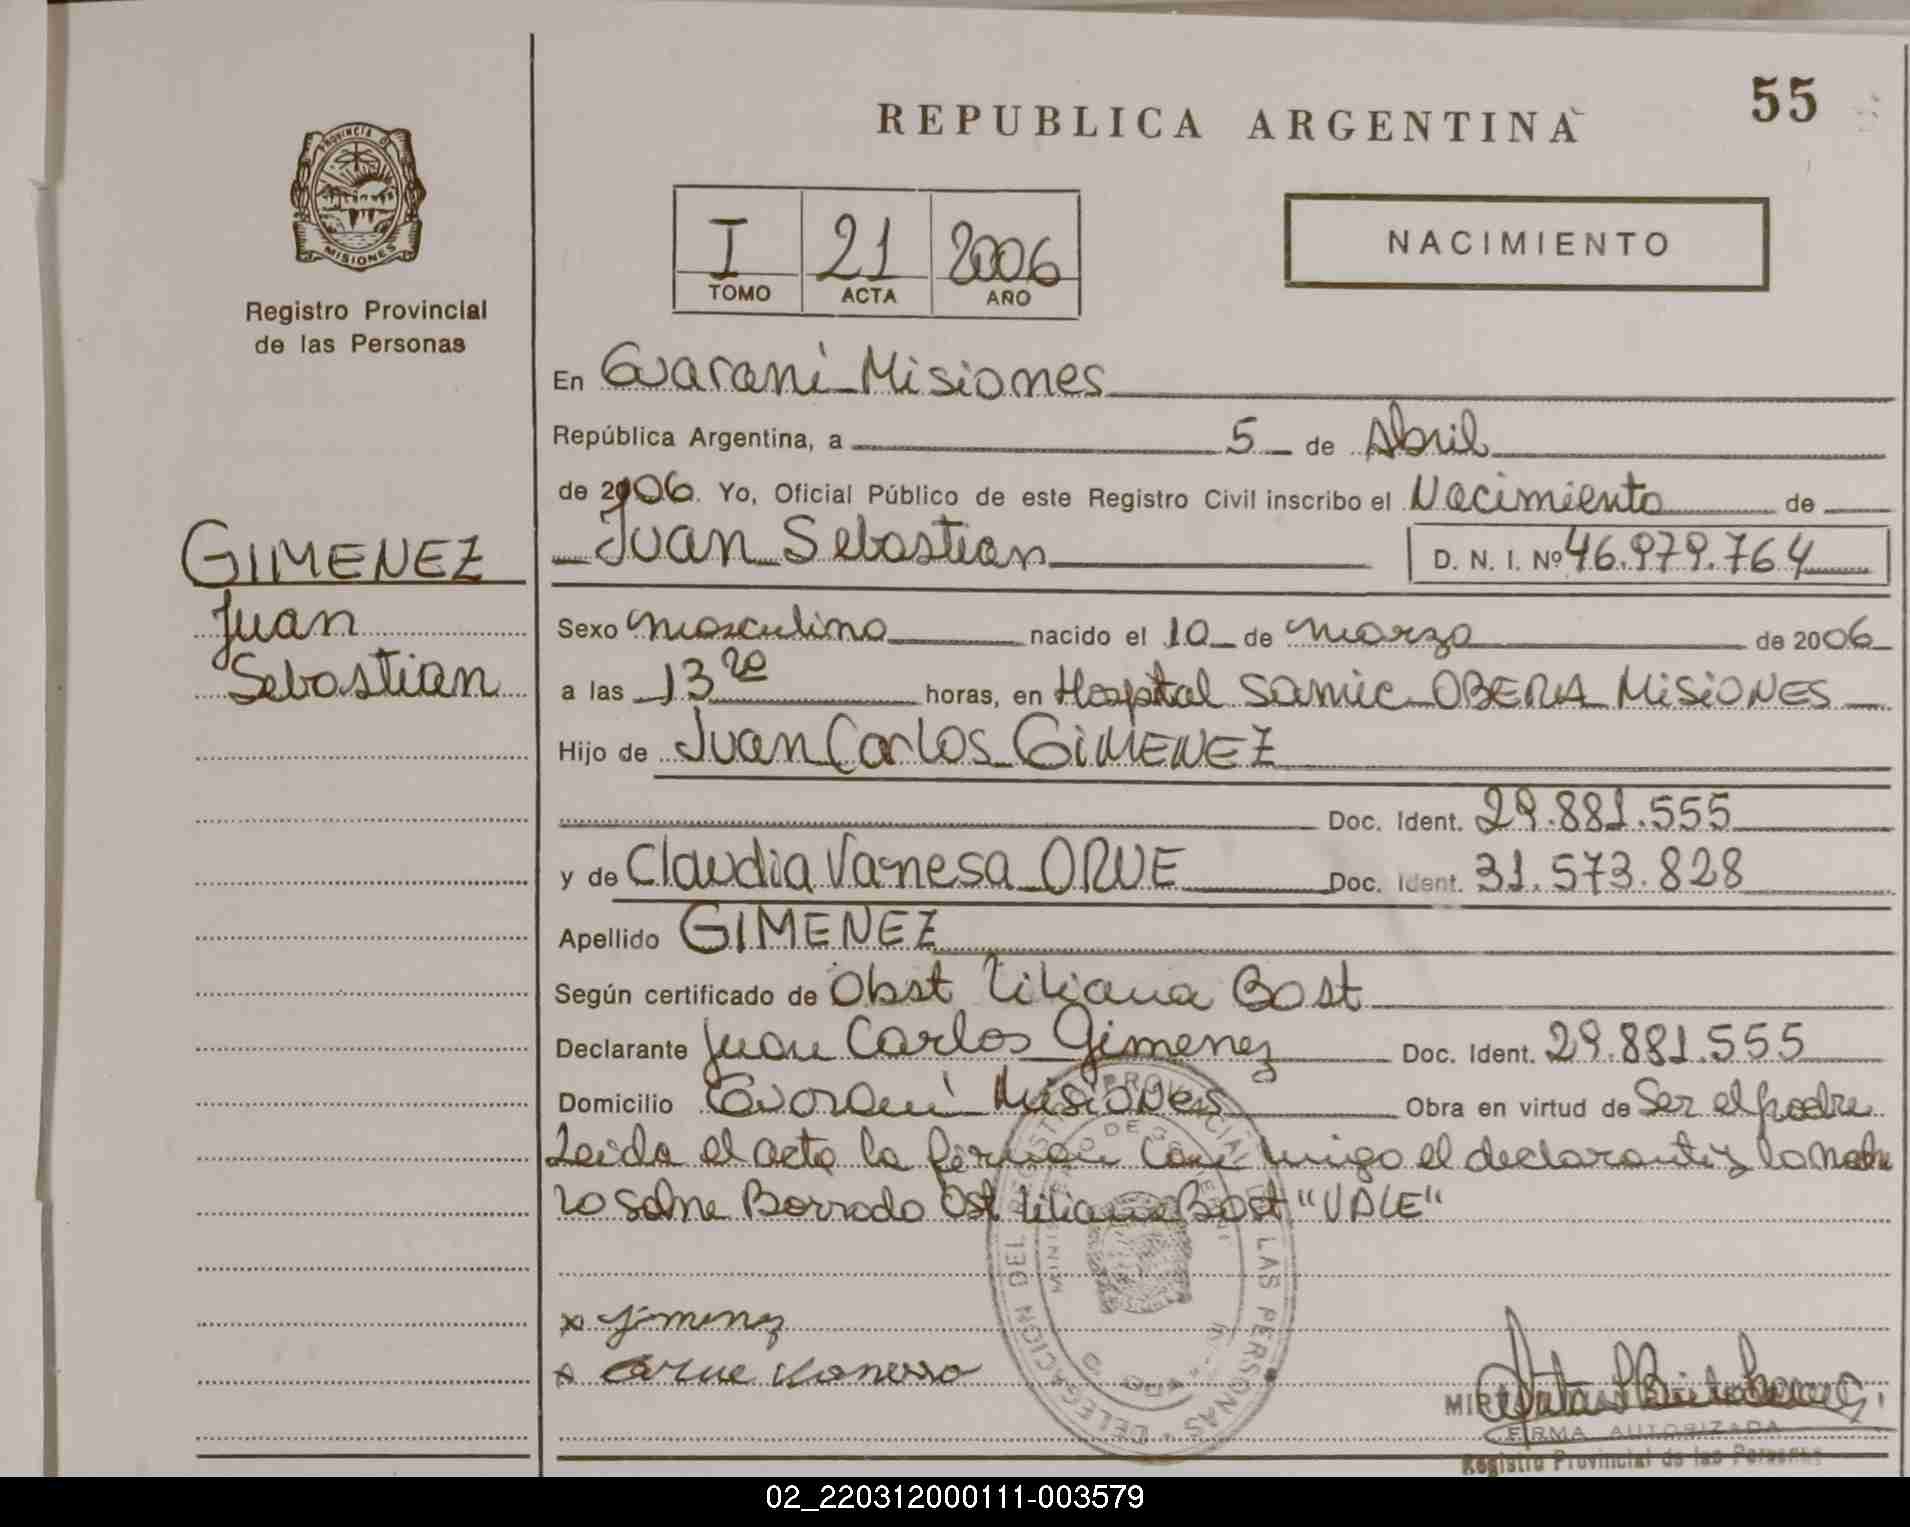 55
REPUBLICA ARGENTINA
PROVINCIA DE
MISIONES
Registro Provincial
de las Personas
I 21 2006
TOMO ACTA AÑO
NACIMIENTO
En Guaraní Misiones
República Argentina, a 5 de Abril
de 2006. Yo, Oficial Público de este Registro Civil inscribo el Nacimiento de
GIMENEZ
Juan
Sebastian
Juan Sebastian D. N. I. Nº 46.979.764
Sexo masculino nacido el 10 de marzo de 2006
a las 13 20 horas, en Hospital Samic OBERA MISIONES
Hijo de Juan Carlos GIMENEZ
Doc. Ident. 29.881.555
y de Claudia Vanesa ORUE Doc. Ident. 31.573.828
Apellido GIMENEZ
Según certificado de Obst Liliana Bost
Declarante Juan Carlos Gimenez Doc. Ident. 29.881.555
Domicilio Guaraní Misiones Obra en virtud de Ser el padre
Leida el acta la firman Con migo el declarante y la madre
Borrado Ost Liliana Bost "VALE"
x Jimenez
x Orue Vanessa
DELEGACION DEL REGISTRO PROVINCIAL DE LAS PERSONAS
FIRMA AUTORIZADA
Registro Provincial de las Personas
02_220312000111-003579